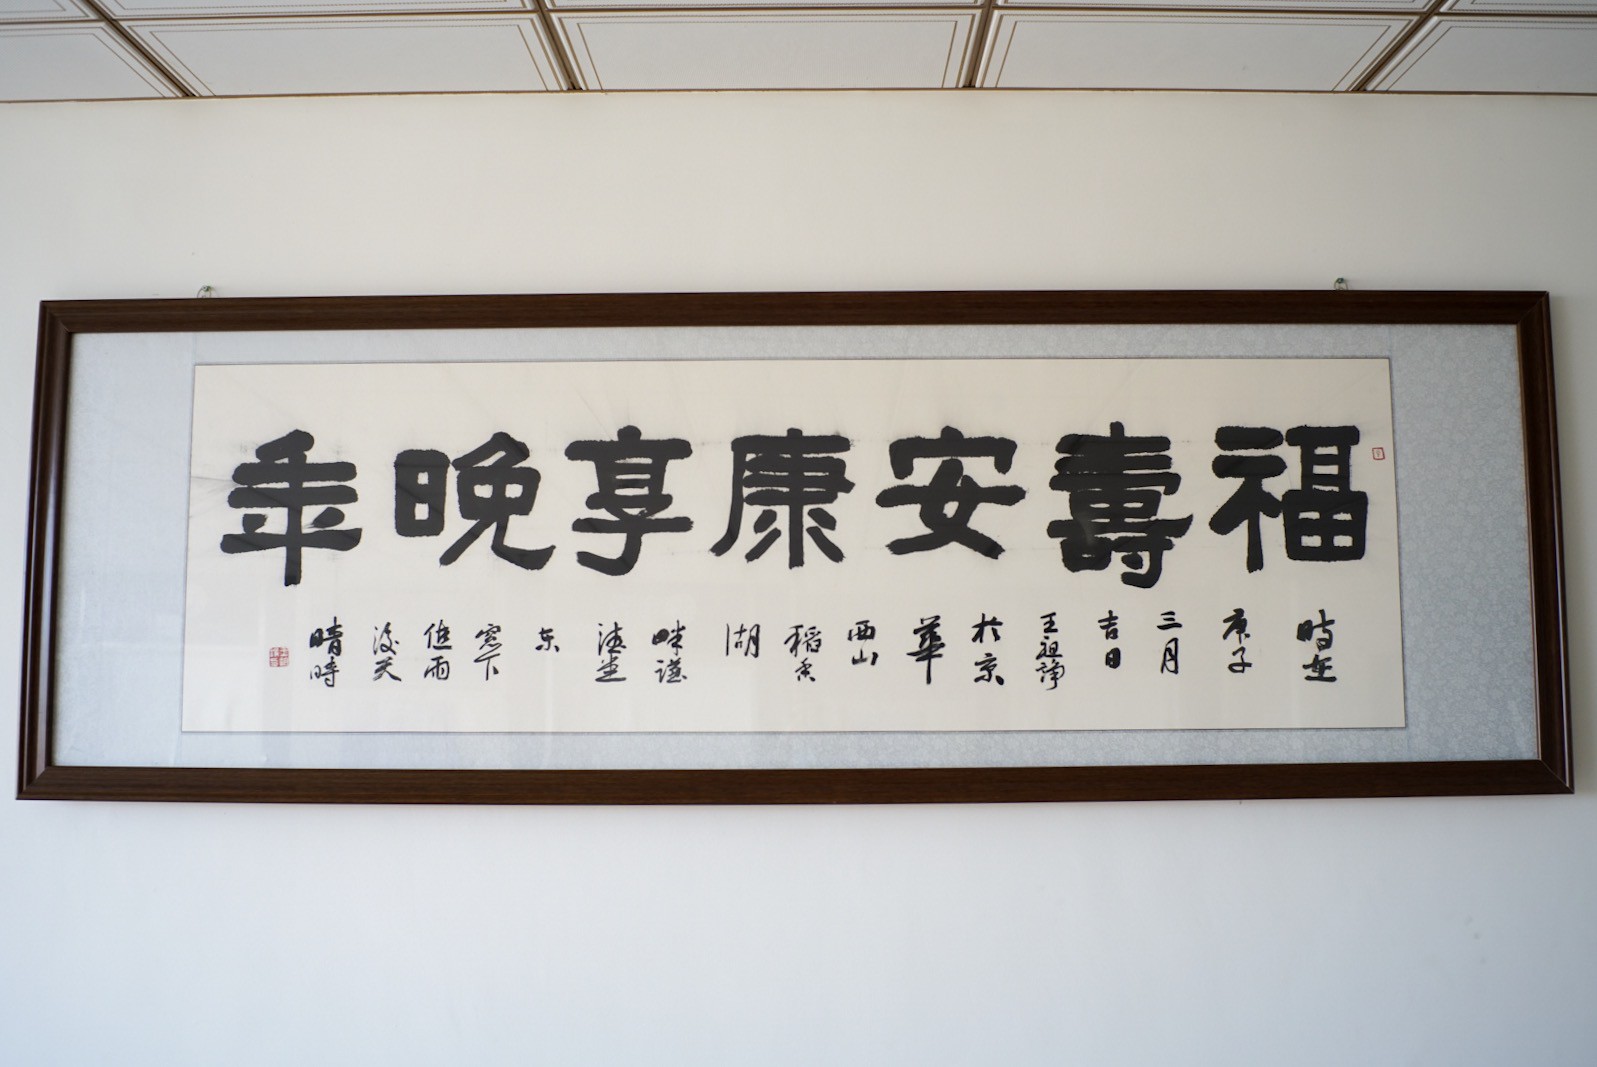 福壽安康享晚年
時在庚子三月吉日王祖諍於京華西山稻香湖畔謹德堂東窓下值雨後天晴時